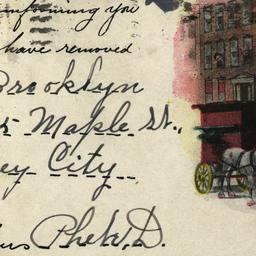 informing you
have removed
Brooklyn
Maple St.,
ey City.
us Phel, D.